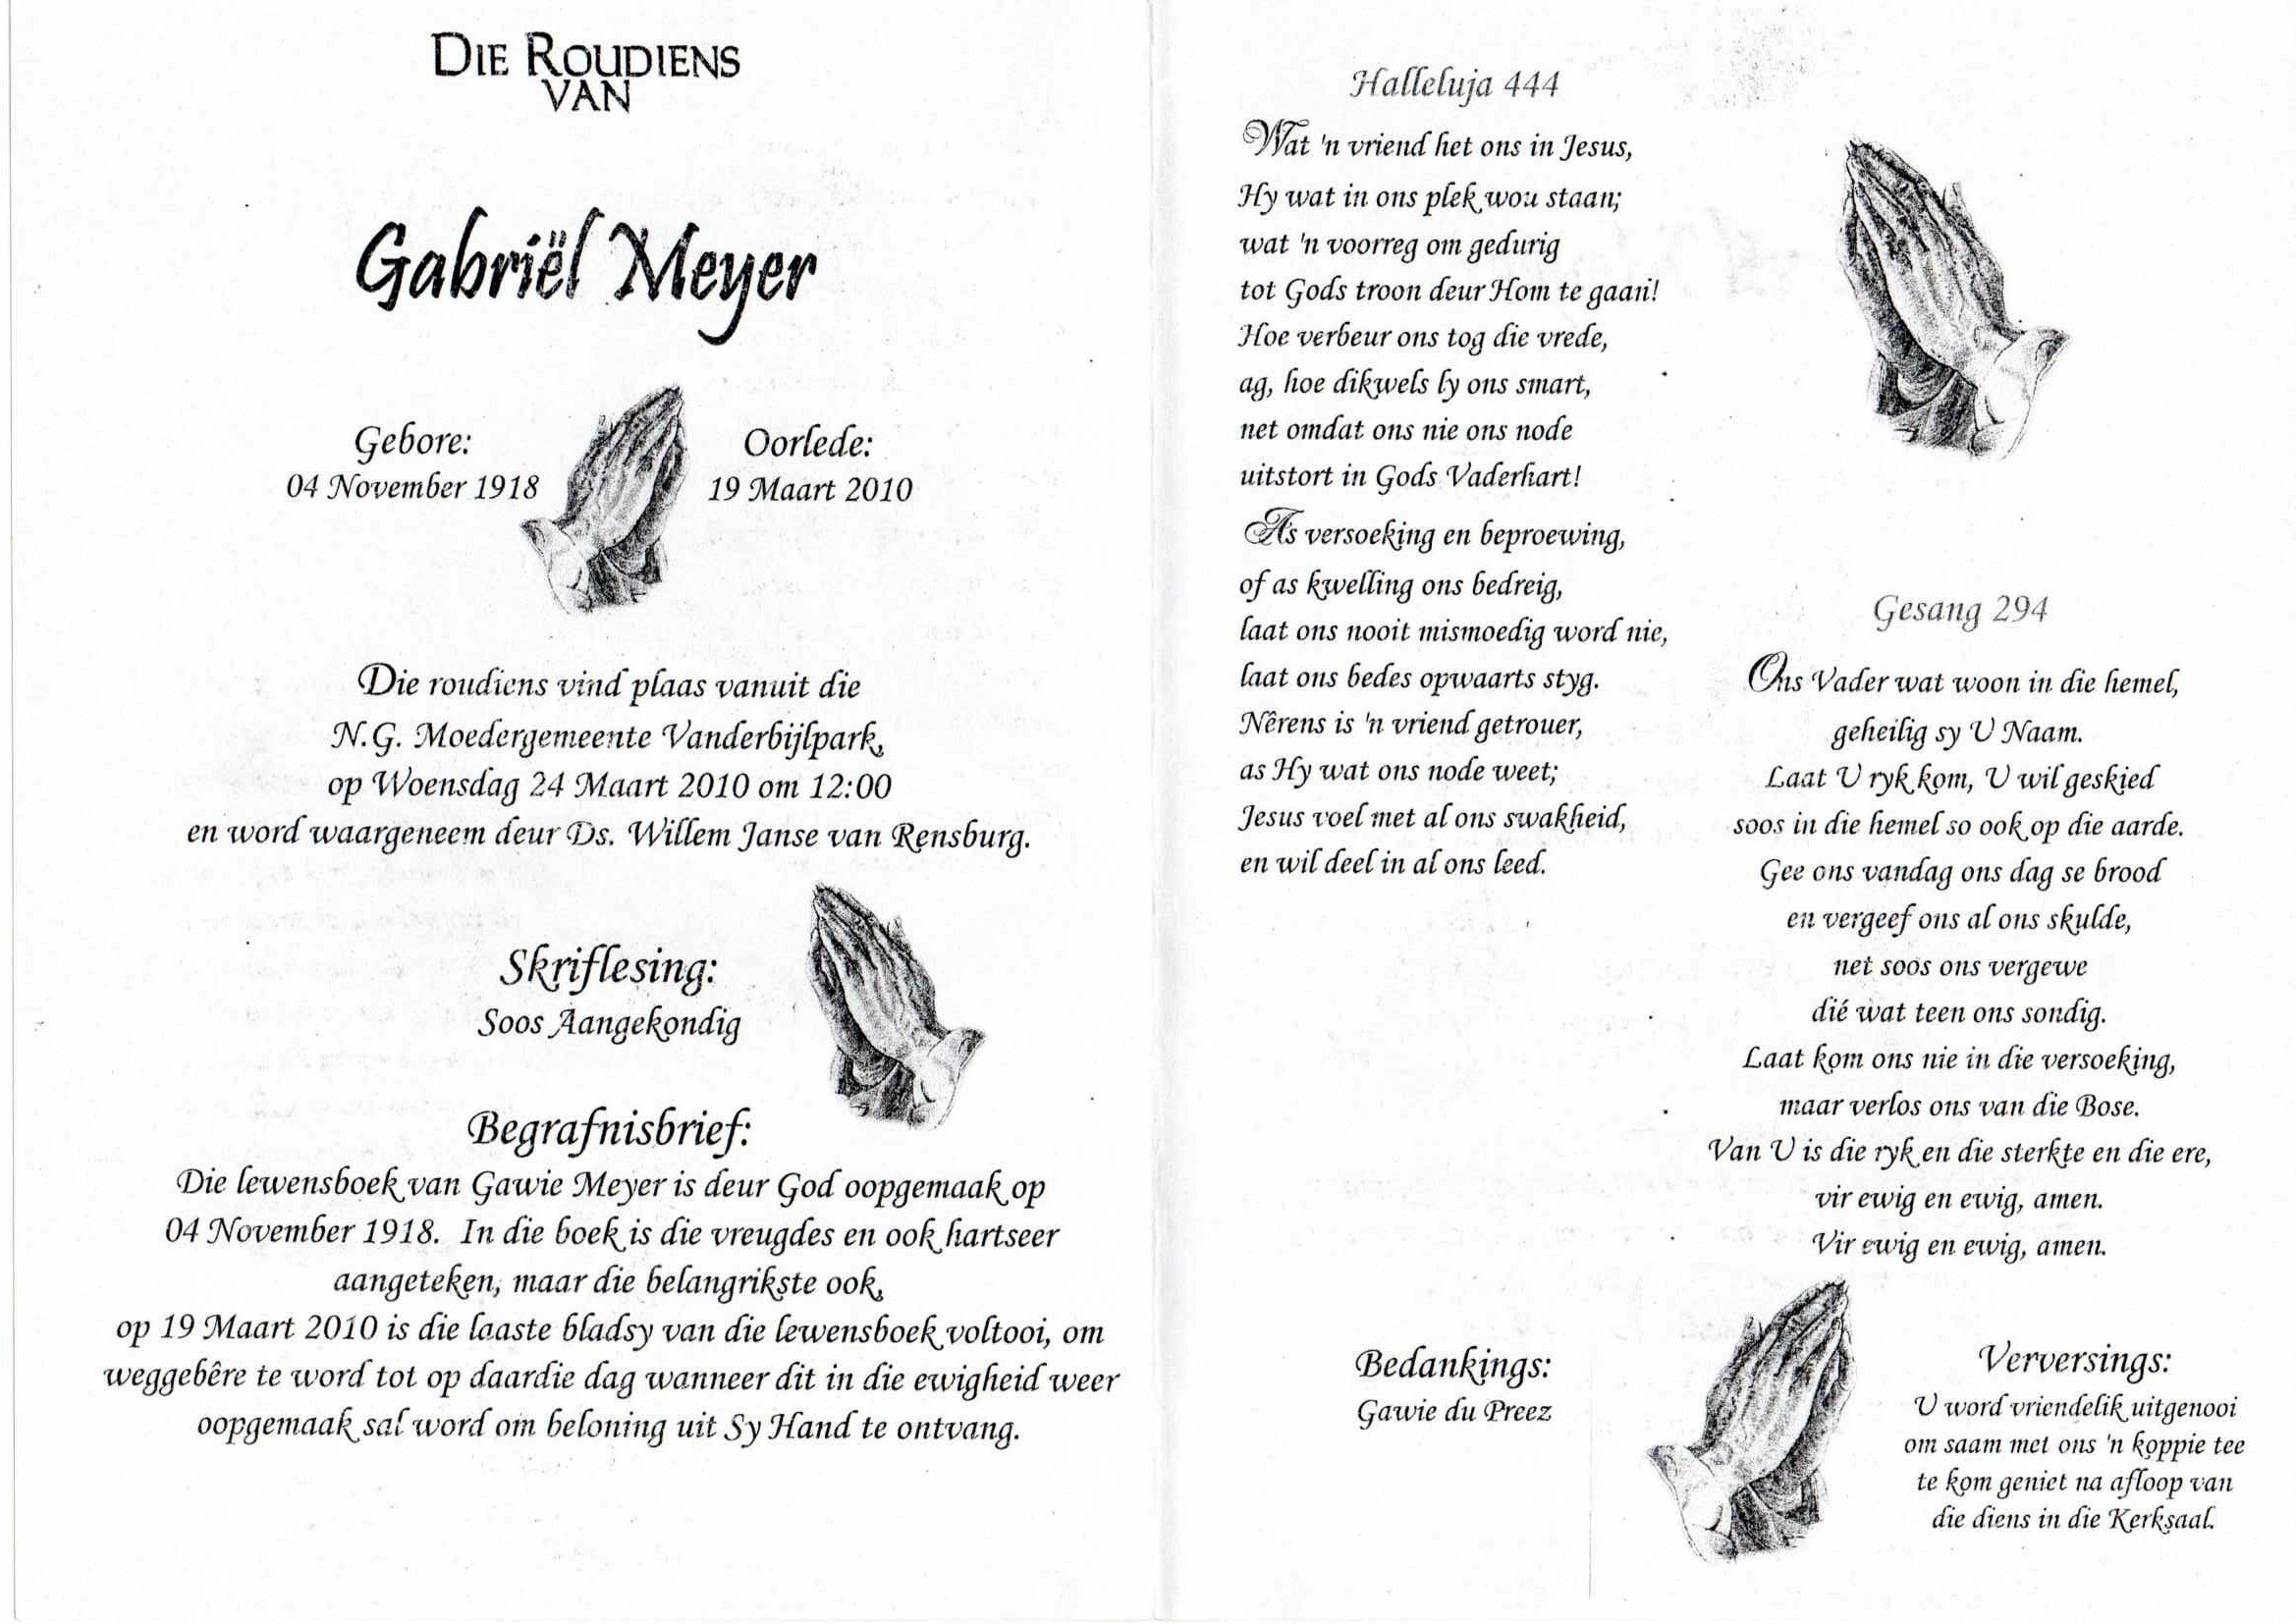 DIE ROUDIENS
VAN
Gabriël Meyer
Gebore:
04 November 1918
Oorlede:
19 Maart 2010
Die roudiens vind plaas vanuit die
N.G. Moedergemeente Vanderbijlpark,
op Woensdag 24 Maart 2010 om 12:00
en word waargeneem deur Ds. Willem Janse van Rensburg.
Skriflesing:
Soos Aangekondig
Begrafnisbrief:
Die lewensboek van Gawie Meyer is deur God oopgemaak op
04 November 1918. In die boek is die vreugdes en ook hartseer
aangeteken, maar die belangrikste ook,
op 19 Maart 2010 is die laaste bladsy van die lewensboek voltooi, om
weggebêre te word tot op daardie dag wanneer dit in die ewigheid weer
oopgemaak sal word om beloning uit Sy Hand te ontvang.
Halleluja 444
Wat 'n vriend het ons in Jesus,
Hy wat in ons plek wou staan;
wat 'n voorreg om gedurig
tot Gods troon deur Hom te gaan!
Hoe verbeur ons tog die vrede,
ag, hoe dikwels ly ons smart,
net omdat ons nie ons node
uitstort in Gods Vaderhart!
As versoeking en beproewing,
of as kwelling ons bedreig,
laat ons nooit mismoedig word nie,
laat ons bedes opwaarts styg.
Nêrens is 'n vriend getrouer,
as Hy wat ons node weet;
Jesus voel met al ons swakheid,
en wil deel in al ons leed.
Gesang 294
Ons Vader wat woon in die hemel,
geheilig sy U Naam.
Laat U ryk kom, U wil geskied
soos in die hemel so ook op die aarde.
Gee ons vandag ons dag se brood
en vergeef ons al ons skulde,
net soos ons vergewe
dié wat teen ons sondig.
Laat kom ons nie in die versoeking,
maar verlos ons van die Bose.
Van U is die ryk en die sterkte en die ere,
vir ewig en ewig, amen.
Vir ewig en ewig, amen.
Bedankings:
Gawie du Preez
Verversings:
U word vriendelik uitgenooi
om saam met ons 'n koppie tee
te kom geniet na afloop van
die diens in die Kerksaal.